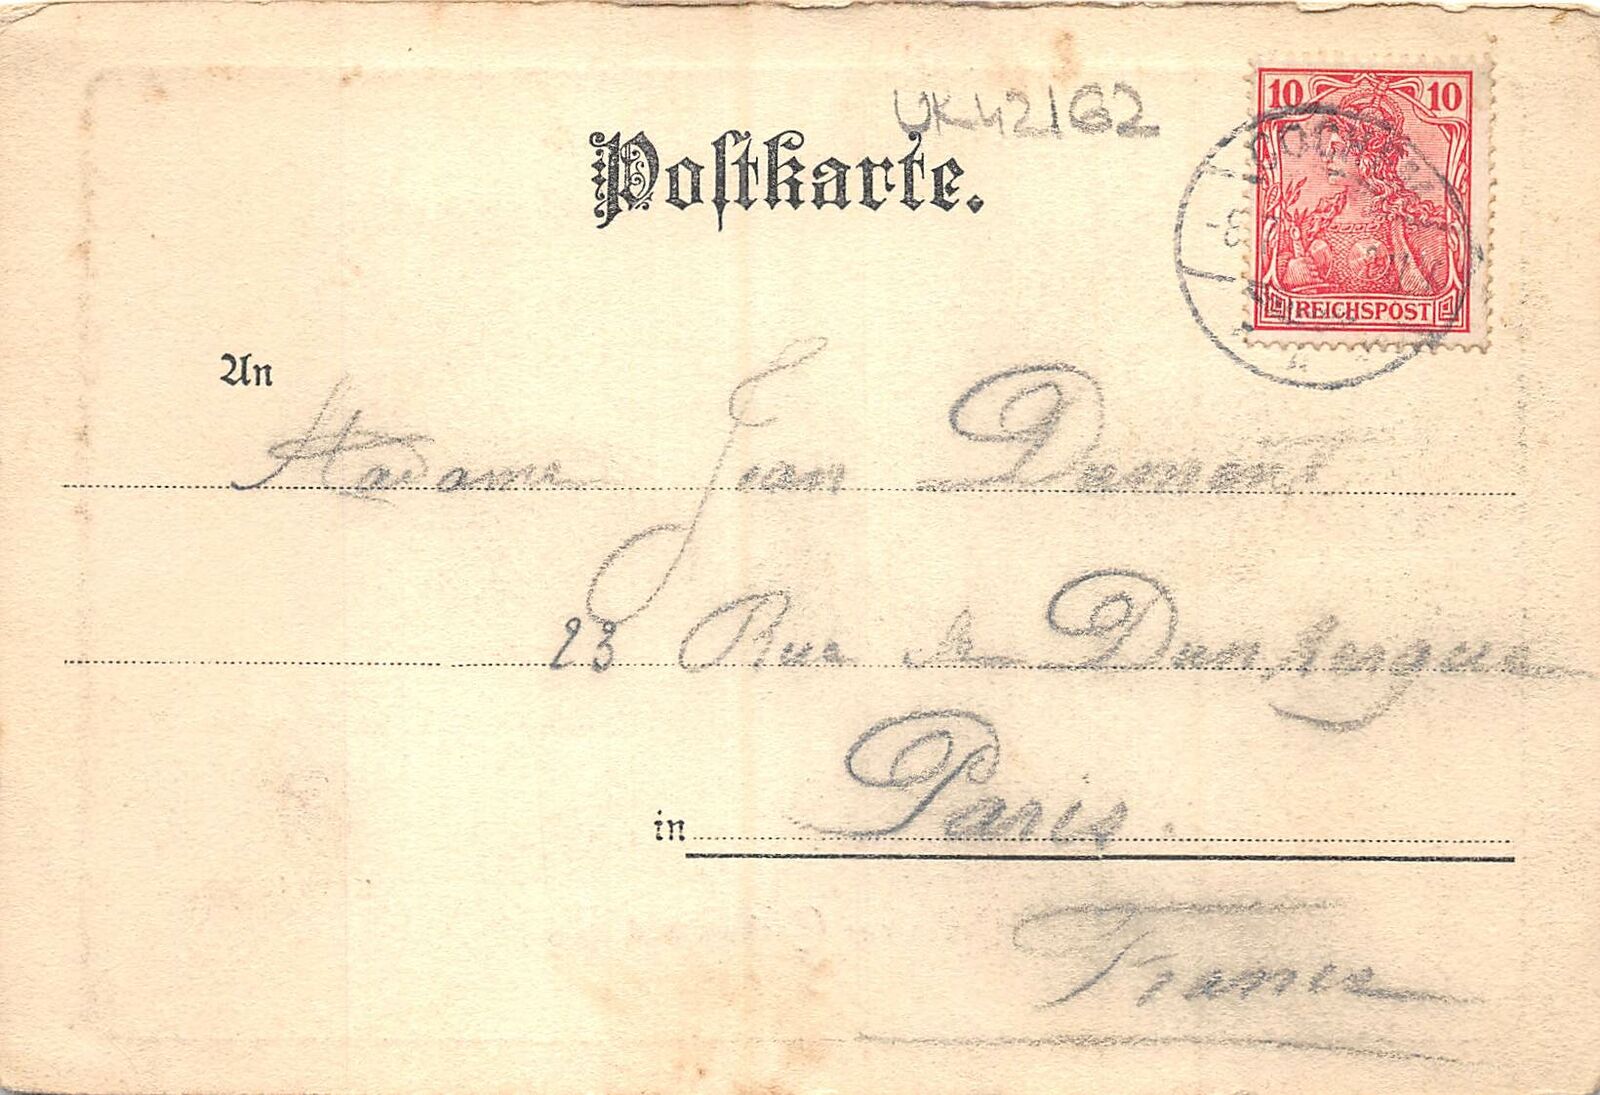 UK42/G2
Postkarte.
10 10
REICHSPOST
An
Madame Jean Dumont
23 Rue de Dunkerque
in Paris.
France